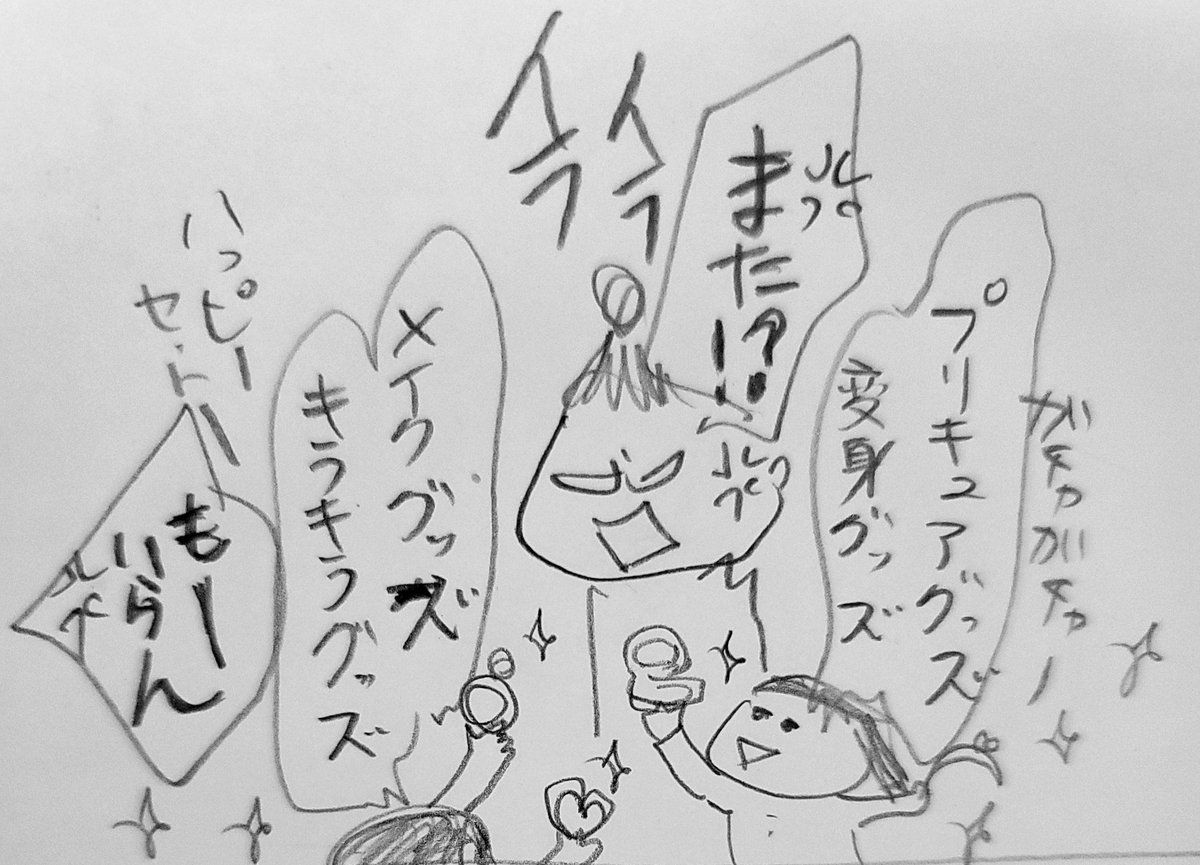 イラ
イラ
また?!
プリキュアグッズ
変身グッズ
ガチャガチャ
メイクグッズ
キラキラグッズ
ハッピー
セット
もーー
いらん